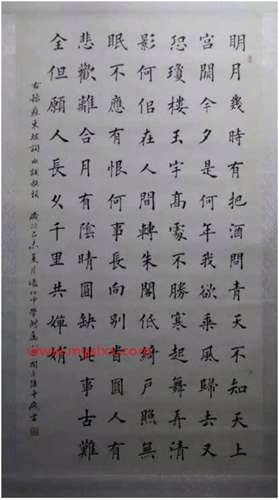 明月幾時有把酒問青天不知天上
宮闕今夕是何年我欲乘風歸去又
恐瓊樓玉宇高處不勝寒起舞弄清
影何佀在人間轉朱閣低綺戶照無
眠不應有恨何事長向別旹圓人有
悲歡離合月有陰晴圓缺此事古難
全但願人長乆千里共嬋娟
右錄蘇東坡詞水調歌頭